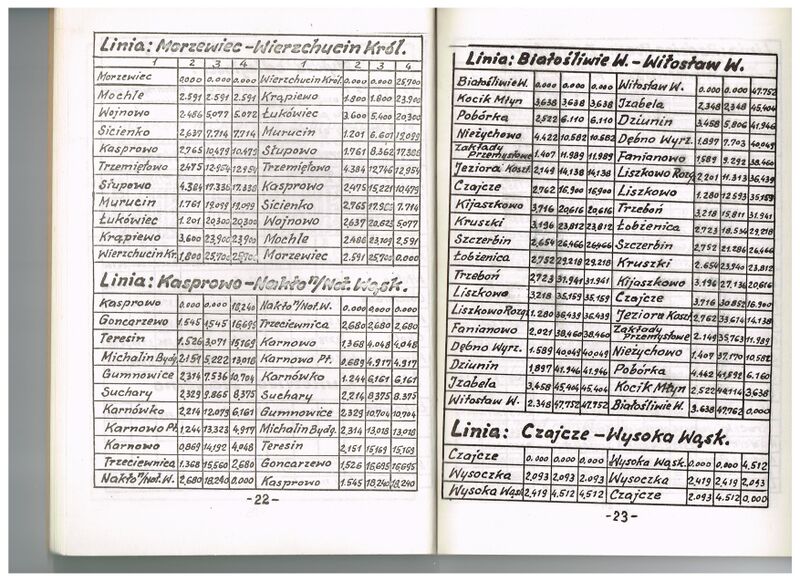 Linia: Morzewiec-Wierzchucin Król.
1 2 3 4 1 2 3 4
Morzewiec 0.000 0.000 0.000 Wierzchucin Król. 0.000 0.000 25.700
Mochle 2.591 2.591 2.591 Krąpiewo 1.800 1.800 23.900
Wojnowo 2.486 5.077 5.072 Łukówiec 3.600 5.400 20.300
Sicienko 2.637 7.714 7.714 Murucin 1.201 6.601 19.099
Kasprowo 2.765 10.479 10.479 Słupowo 1.761 8.362 17.338
Trzemiętowo 2.475 12.954 12.954 Trzemiętowo 4.384 12.746 12.954
Słupowo 4.384 17.338 17.338 Kasprowo 2.475 15.221 10.479
Murucin 1.761 19.099 19.099 Sicienko 2.765 7.714
Łukówiec 1.201 20.300 20.300 Wojnowo 2.637 20.623 5.077
Krąpiewo 3.600 23.900 23.900 Mochle 2.486 23.109 2.591
Wierzchucin Kr. 1.800 25.700 25.700 Morzewiec 2.591 25.700 0.000
Linia: Kasprowo-Nakło n/Not. Wąsk.
Kasprowo 0.000 0.000 18.240 Nakło n/Not. W. 0.000 0.000 0.000
Goncarzewo 1.545 1.545 16.695 Trzeciewnica 2.680 2.680 2.680
Teresin 1.526 3.071 15.169 Karnowo 1.368 4.048 4.048
Michalin Bydg. 2.151 5.222 13.018 Karnowo Pt. 0.689 4.917 4.917
Gumnowice 2.314 7.536 10.704 Karnówko 1.244 6.161 6.161
Suchary 2.329 9.865 8.375 Suchary 2.214 8.375 8.375
Karnówko 2.214 12.079 6.161 Gumnowice 2.329 10.704 10.704
Karnowo Pt. 1.244 13.323 4.917 Michalin Bydg. 2.314 13.018 13.018
Karnowo 0.869 14.192 4.048 Teresin 2.151 15.169 15.169
Trzeciewnica 1.368 15.560 2.680 Goncarzewo 1.526 16.695 16.695
Nakło n/Not. W. 2.680 18.240 0.000 Kasprowo 1.545 18.240 18.240
-22-
Linia: Białośliwie W. - Witosław W.
Białośliwie W. 0.000 0.000 0.000 Witosław W. 0.000 0.000 47.752
Kocik Młyn 3.638 3.638 3.638 Jzabela 2.348 2.348 45.404
Pobórka 2.522 6.110 6.110 Dziunin 3.458 5.806 41.946
Nieżychowo 4.422 10.582 10.582 Dębno Wyrz. 1.897 7.703 40.049
Zakłady Przemysłowe 1.407 11.989 11.989 Fanianowo 1.589 9.292 38.460
Jeziora Koszt. 2.149 14.138 14.138 Liszkowo Rozg. 2.201 11.313 36.439
Czajcze 2.762 16.900 16.900 Liszkowo 1.280 12.593 35.159
Kijaszkowo 3.716 20.616 20.616 Trzeboń 3.218 15.811 31.941
Kruszki 3.196 23.812 23.812 Łobżenica 2.723 18.534 29.218
Szczerbin 2.654 26.466 26.466 Szczerbin 2.752 21.286 26.466
Łobżenica 2.752 29.218 29.218 Kruszki 2.654 23.940 23.812
Trzeboń 2.723 31.941 31.941 Kijaszkowo 3.196 27.136 20.616
Liszkowo 3.218 35.159 35.159 Czajcze 3.716 30.852 16.900
Liszkowo Rozg. 1.280 36.439 36.439 Jeziora Koszt. 2.762 33.614 14.138
Fanianowo 2.021 38.460 38.460 Zakłady Przemysłowe 2.149 35.763 11.989
Dębno Wyrz. 1.589 40.049 40.049 Nieżychowo 1.407 37.170 10.582
Dziunin 1.897 41.946 41.946 Pobórka 4.442 41.592 6.160
Jzabela 3.458 45.404 45.404 Kocik Młyn 2.522 44.114 3.638
Witosław W. 2.348 47.752 47.752 Białośliwie W. 3.638 47.762 0.000
Linia: Czajcze - Wysoka Wąsk.
Czajcze 0.000 0.000 0.000 Wysoka Wąsk. 0.000 0.000 4.512
Wysoczka 2.093 2.093 2.093 Wysoczka 2.419 2.419 2.093
Wysoka Wąsk. 2.419 4.512 4.512 Czajcze 2.093 4.512 0.000
-23-